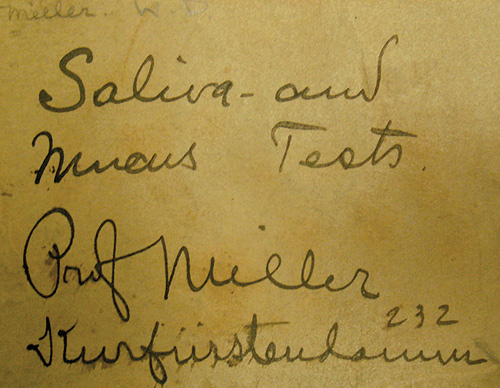 Miller. W. D
Saliva - and
Mucus Tests.
Prof Miller
232
Kurfürstendamm